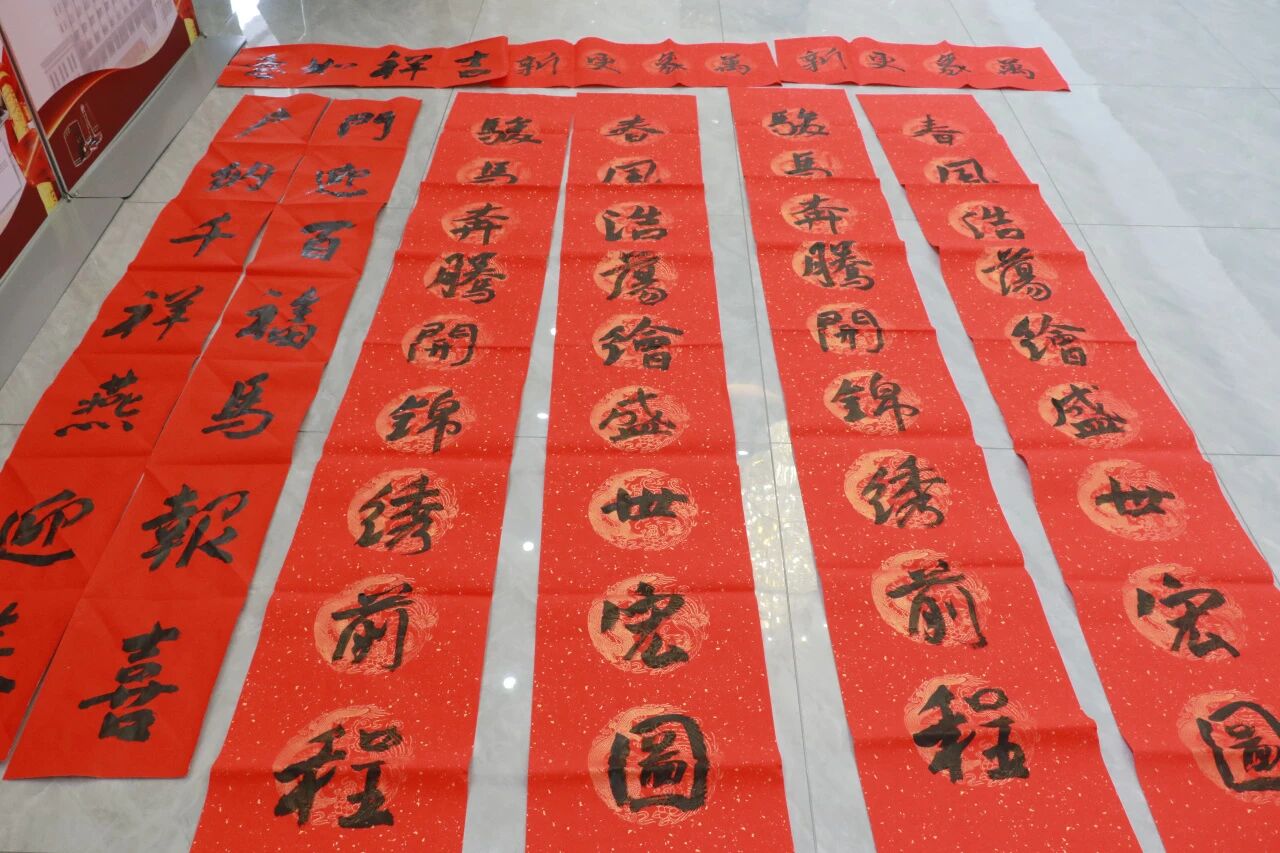 萬象更新
萬象更新
吉祥如意
春風浩蕩繪盛世宏圖
駿馬奔騰開錦綉前程
春風浩蕩繪盛世宏圖
駿馬奔騰開錦綉前程
門迎百福馬報喜
户納千祥燕迎